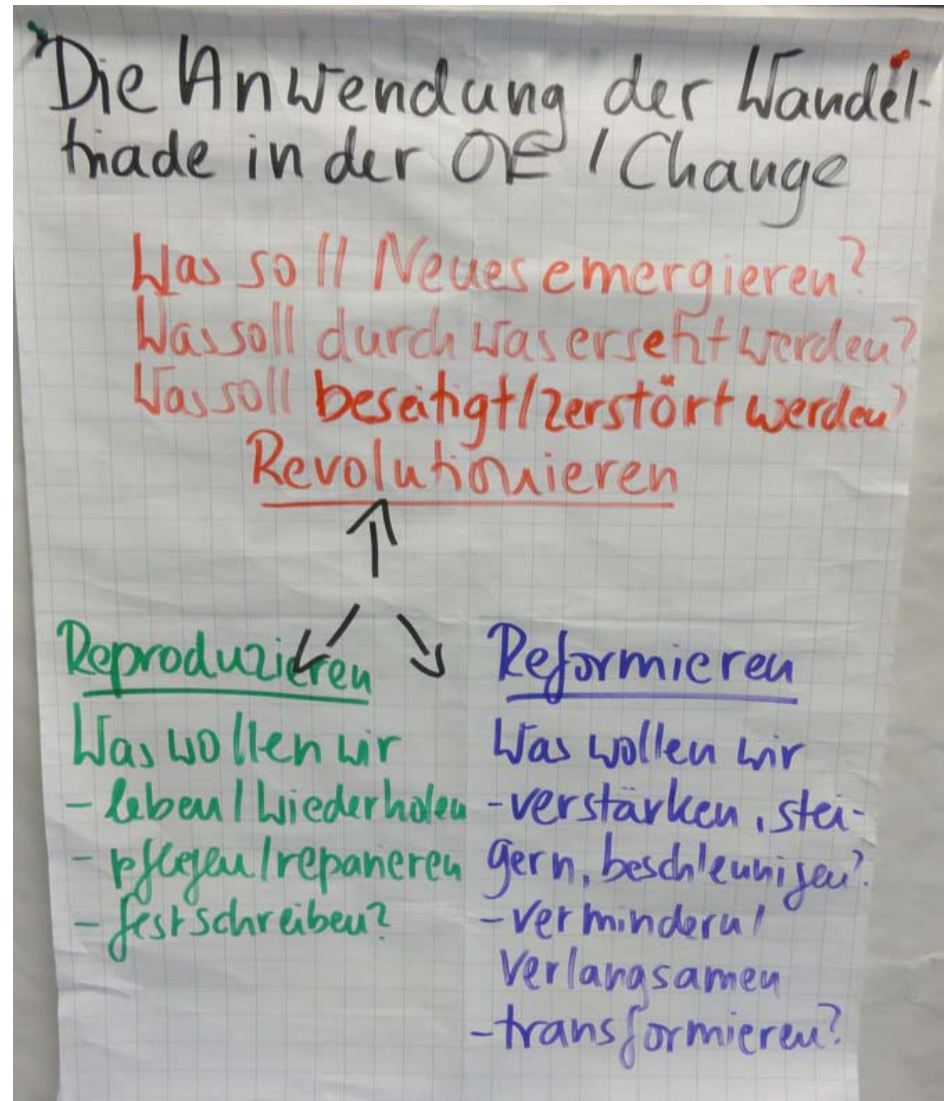 Die Anwendung der Wandel-
triade in der OE / Change
Was soll Neues emergieren?
Was soll durch was ersetzt werden?
Was soll beseitigt/zerstört werden?
Revolutionieren
Reproduzieren
Was wollen wir
- leben / wiederholen
- pflegen / reparieren
- festschreiben?
Reformieren
Was wollen wir
- verstärken, stei-
gern, beschleunigen?
- vermindern /
verlangsamen
- transformieren?